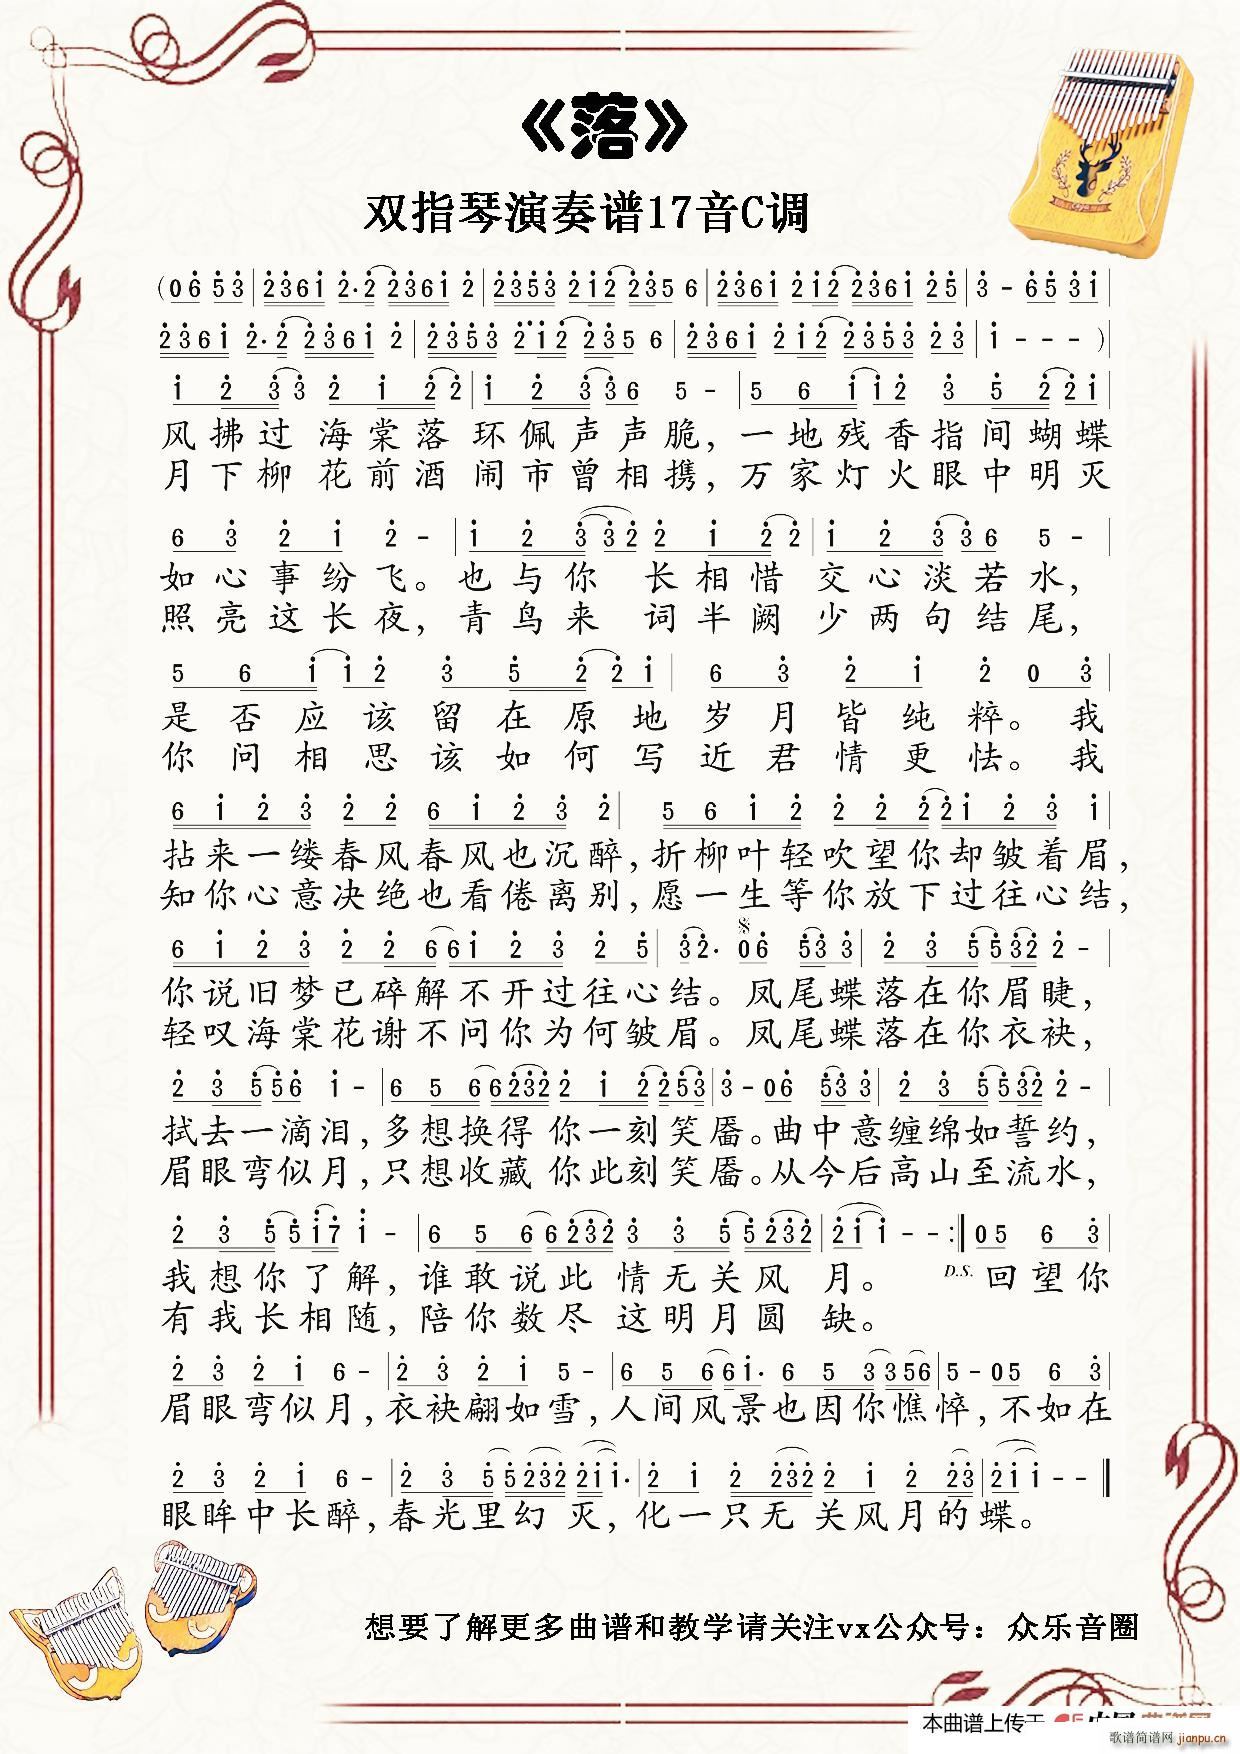 《落》
双指琴演奏谱17音C调
(0 6 5 3 | 2 3 6 1 2· 2 2 3 6 1 2 | 2 3 5 3 2 1 2 2 3 5 6 | 2 3 6 1 2 1 2 2 3 6 1 2 5 | 3 - 6 5 3 1 |
2 3 6 1 2· 2 2 3 6 1 2 | 2 3 5 3 2 1 2 2 3 5 6 | 2 3 6 1 2 1 2 2 3 5 3 2 3 | 1 - - - )|
1 2 3 3 2 1 2 2 | 1 2 3 3 6 5 - | 5 6 1 1 2 3 5 2 2 1
风拂过海棠落环佩声声脆，一地残香指间蝴蝶
月下柳花前酒闹市曾相携，万家灯火眼中明灭
6 3 2 1 2 - | 1 2 3 3 2 2 1 2 2 | 1 2 3 3 6 5 - |
如心事纷飞。也与你长相惜交心淡若水，
照亮这长夜，青鸟来词半阙少两句结尾，
5 6 1 1 2 3 5 2 2 1 | 6 3 2 1 2 0 3 |
是否应该留在原地岁月皆纯粹。我
你问相思该如何写近君情更怯。我
6 1 2 3 2 2 6 1 2 3 2 | 5 6 1 2 2 2 2 2 1 2 3 1 |
拈来一缕春风春风也沉醉，折柳叶轻吹望你却皱着眉，
知你心意决绝也看倦离别，愿一生等你放下过往心结，
6 1 2 3 2 2 6 6 1 2 3 2 5 | 3 2· 0 6 5 3 3 | 2 3 5 5 3 2 2 - |
你说旧梦已碎解不开过往心结。凤尾蝶落在你眉睫，
轻叹海棠花谢不问你为何皱眉。凤尾蝶落在你衣袂，
2 3 5 5 6 1 - | 6 5 6 6 2 3 2 2 1 2 2 5 3 | 3 - 0 6 5 3 3 | 2 3 5 5 3 2 2 - |
拭去一滴泪，多想换得你一刻笑靥。曲中意缠绵如誓约，
眉眼弯似月，只想收藏你此刻笑靥。从今后高山至流水，
2 3 5 5 1 7 1 - | 6 5 6 6 2 3 2 3 3 5 5 2 3 2 | 2 1 1 - - :| 0 5 6 3 |
我想你了解，谁敢说此情无关风月。 D.S. 回望你
有我长相随，陪你数尽这明月圆缺。
2 3 2 1 6 - | 2 3 2 1 5 - | 6 5 6 6 1· 6 5 3 3 5 6 | 5 - 0 5 6 3 |
眉眼弯似月，衣袂翩如雪，人间风景也因你憔悴，不如在
2 3 2 1 6 - | 2 3 5 5 2 3 2 2 1 1· | 2 1 2 2 3 2 2 1 2 2 3 | 2 1 1 - - ‖
眼眸中长醉，春光里幻灭，化一只无关风月的蝶。
想要了解更多曲谱和教学请关注vx公众号：众乐音圈
本曲谱上传于
歌谱简谱网 jianpu.cn